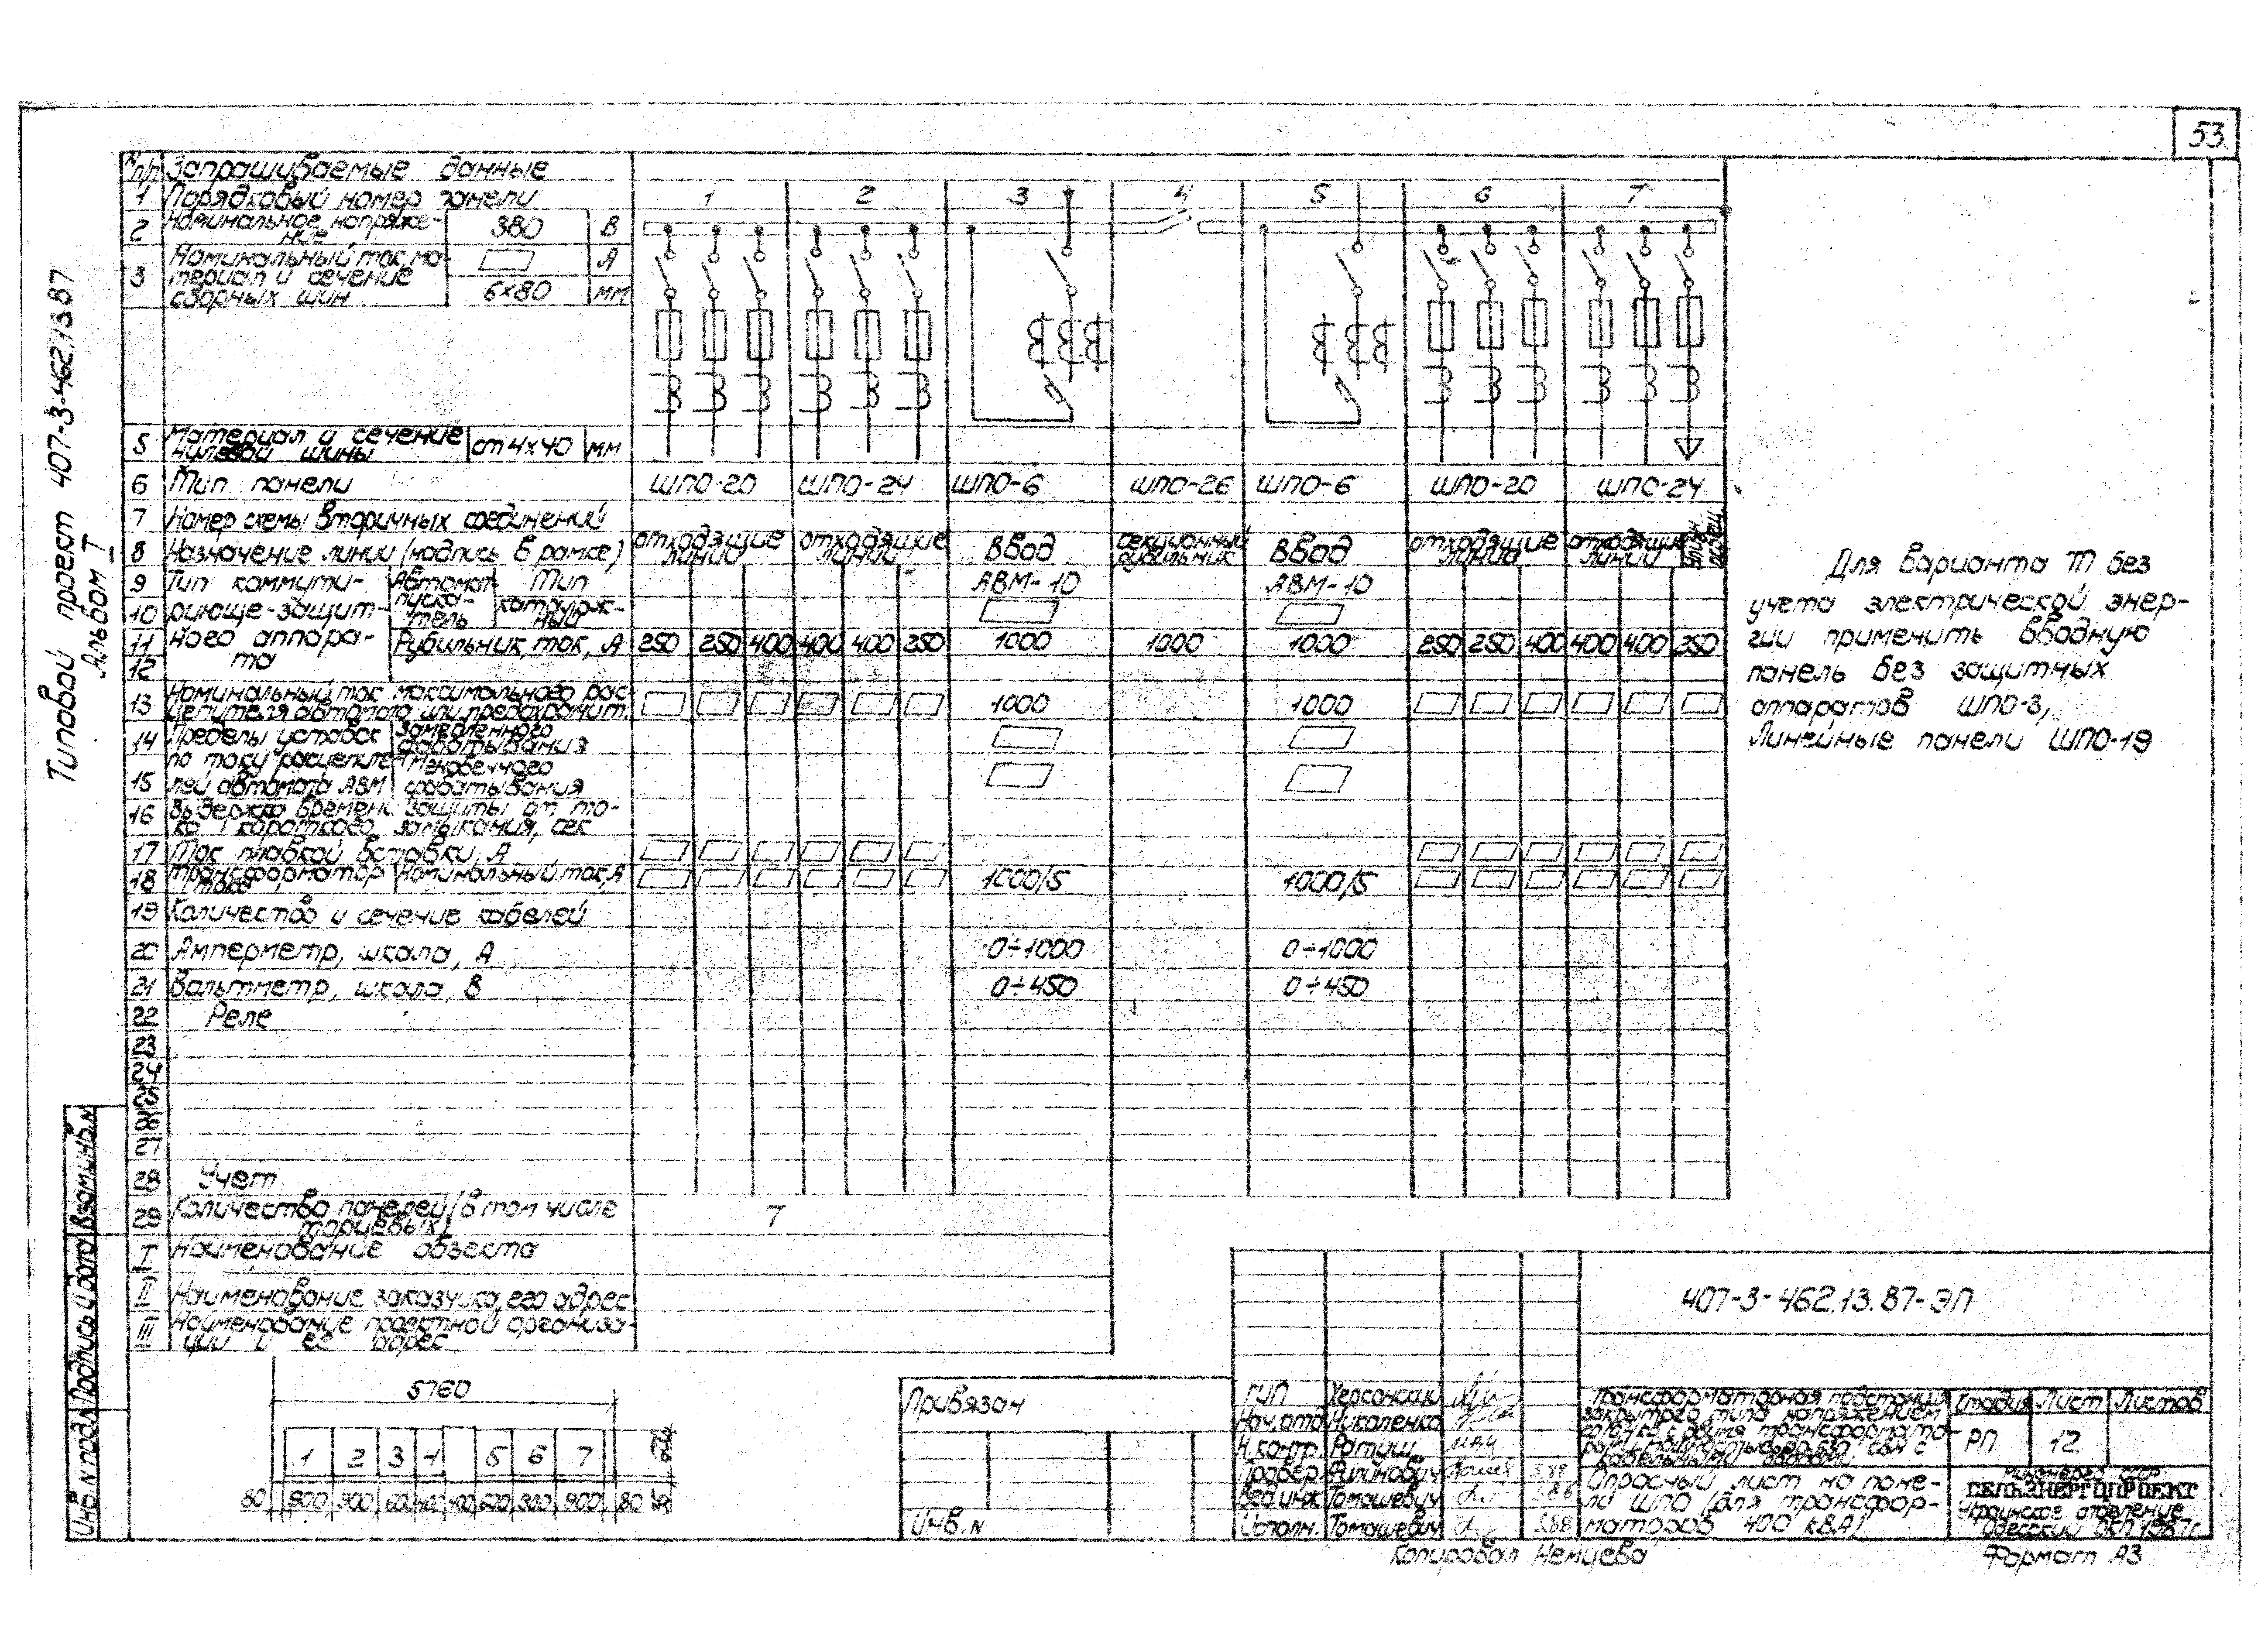 53.
Типовой проект 407-3-462.13.87
Альбом I
N п/п Запрашиваемые данные
1 Порядковый номер панели 1 2 3 4 5 6 7
2 Номинальное напряже-
ние 380 В
3 Номинальный ток, ма-
териал и сечение
сборных шин
А
6×80 мм
5 Материал и сечение
нулевой шины ст 4×40 мм
6 Тип панели ШПО-20 ШПО-24 ШПО-6 ШПО-26 ШПО-6 ШПО-20 ШПО-24
7 Номер схемы вторичных соединений
8 Назначение линии (надпись в рамке) отходящие линии отходящие линии Ввод секционный рубильник Ввод отходящие линии отходящие линии
9 Тип коммути-
10 рующе-защит-
11 ного аппара-
12 та
Автомат
пуска-
тель
Тип
АВМ-10 АВМ-10
Рубильник, ток, А 250 250 400 400 400 250 1000 1000 1000 250 250 400 400 400 250
13 Номинальный ток максимального рас-
цепителя автомата или предохранит. 1000 1000
14 Пределы уставок
по току расцепите-
15 лей автомата АВМ
Замедленного
срабатывания
Мгновенного
срабатывания
16 Выдержка времени защиты от то-
ка короткого замыкания, сек
17 Ток плавкой вставки, А
18 Трансформатор
тока Номинальный ток, А 1000/5 1000/5
19 Количество и сечение кабелей
20 Амперметр, шкала, А 0÷1000 0÷1000
21 Вальтметр, шкала, В 0÷450 0÷450
22 Реле
23
24
25
26
27
28 Учет
29 Количество панелей (в том числе
торцевых) 7
I Наименование объекта
II Наименование заказчика, его адрес
III Наименование проектной организа-
ции и её адрес
Для варианта III без
учета электрической энер-
гии применить вводную
панель без защитных
аппаратов ШПО-3,
Линейные панели ШПО-19
5760
1 2 3 4 5 6 7
80 900 900 600 900 80
Привязан
Инв. N
407-3-462.13.87-ЭП
ГИП Херсонский
Нач. отд. Николенко
Н. контр. Ратуш
Провер. Филинович
Вед. инж. Томашевич
Исполн. Томашевич
Трансформаторная подстанция
закрытого типа напряжением
10/0,4 кВ с двумя трансформато-
рами мощностью до 630 кВА с
кабельными вводами
Опросный лист на пане-
ли ШПО (для трансфор-
маторов 400 кВА)
Стадия Лист Листов
РП 12
Минэнерго СССР
СЕЛЬЭНЕРГОПРОЕКТ
Украинское отделение
Одесский ОКП 1987г.
Копировал Немцева
Формат А3
Инв. N подл. Подпись и дата Взам. инв. N